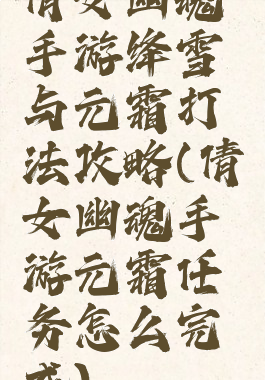 倩女幽魂
手游绛雪
与元霜打
法攻略(倩
女幽魂手
游元霜任
务怎么完
成)